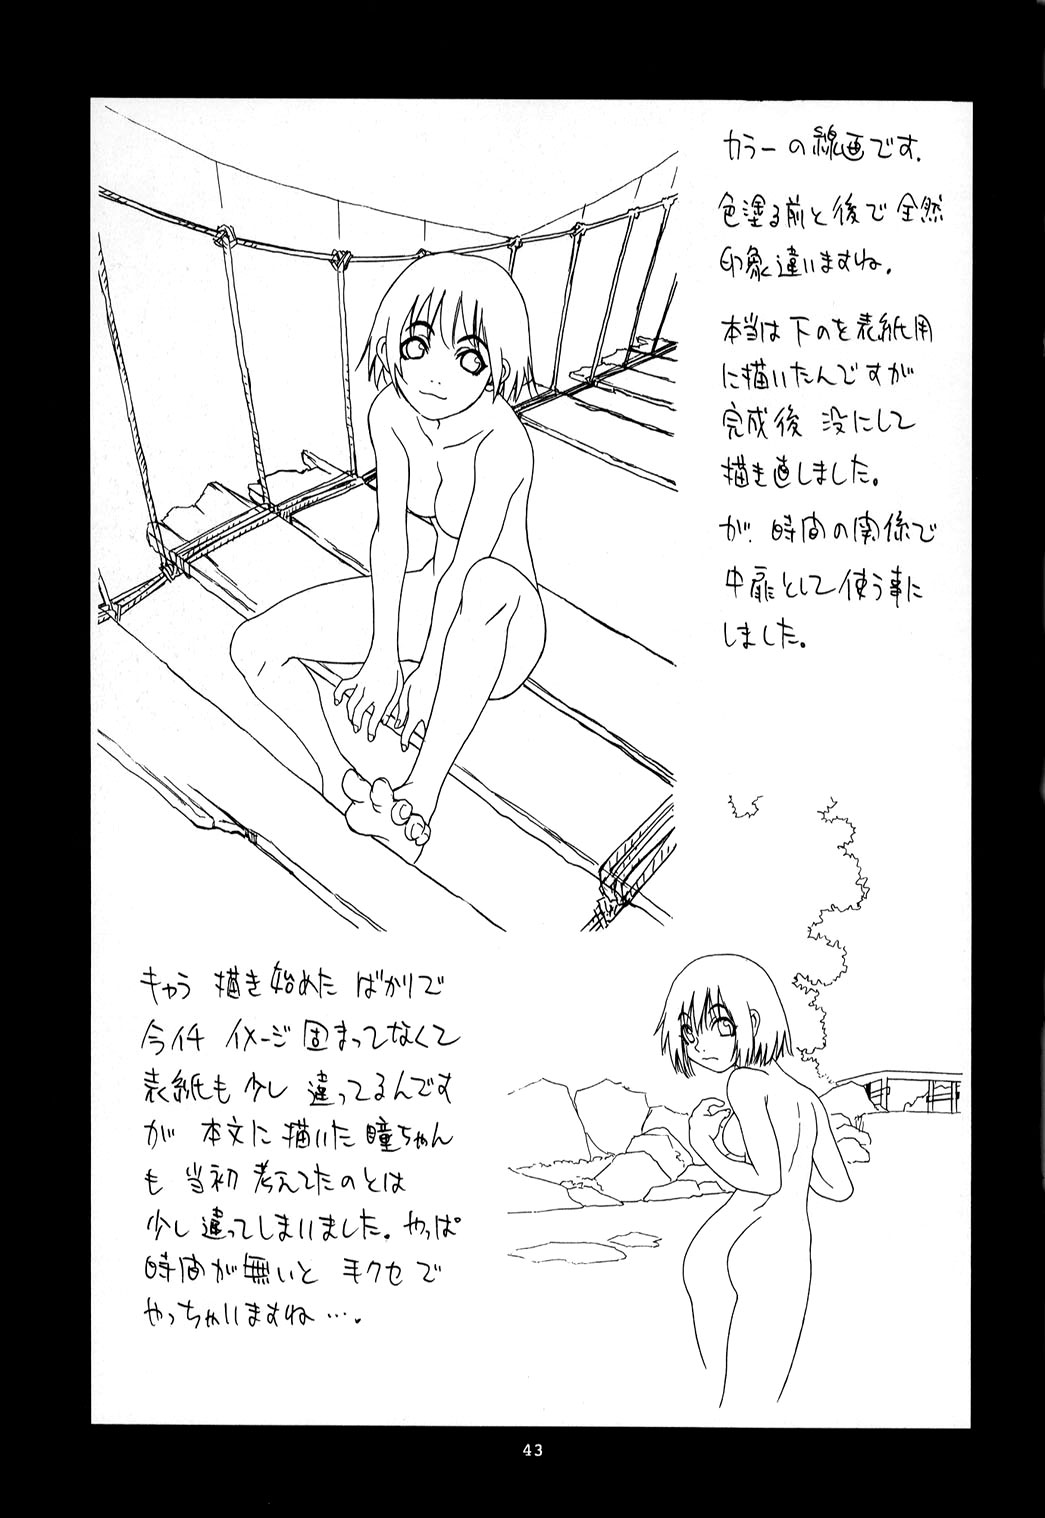 カラーの線画です.
色塗る前と後で全然
印象違いますね.
本当は下のを表紙用
に描いたんですが
完成後 没にして
描き直しました。
が. 時間の関係で
中扉として使う事に
しました。
キャラ 描き始めた ばかりで
今イチ イメージ固まってなくて
表紙も少し 違ってるんです
が 本文に描いた瞳ちゃん
も 当初 考えてたのとは
少し違ってしまいました。やっぱ
時間が無いと 手クセで
やっちゃいますね…。
43